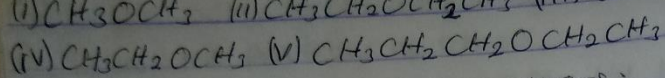 (i) CH3OCH3 (iii) CH3CH2OCH2CH3
(iv) CH3CH2OCH3 (v) CH3CH2CH2OCH2CH3